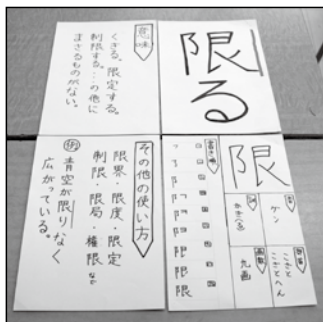 限る
意味
くぎる。限定する。
制限する。…の他に
まさるものがない。
限
音
ゲン
訓
かぎ(る)
部首
こざと
こざとへん
画数
九画
書き順
その他の使い方
限界・限度・限定
制限・限局・権限など
例
青空が限りなく
広がっている。